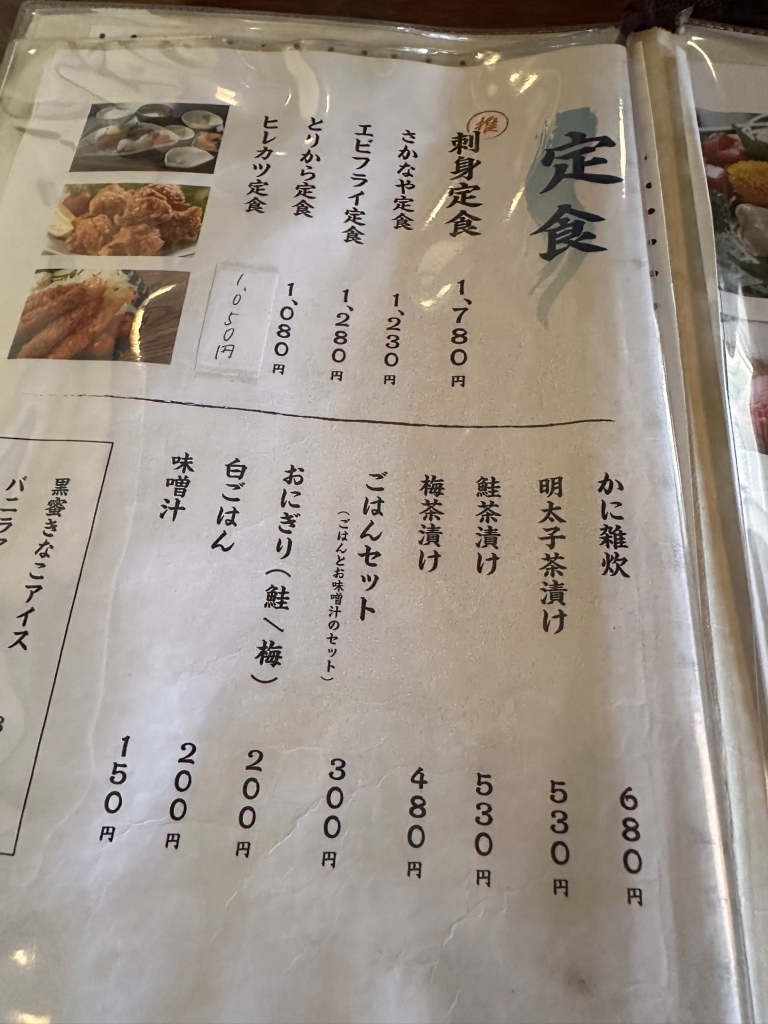 定食
推
刺身定食 1,780円
さかなや定食 1,230円
エビフライ定食 1,280円
とりから定食 1,080円
ヒレカツ定食 1,050円
かに雑炊 680円
明太子茶漬け 530円
鮭茶漬け 530円
梅茶漬け 480円
ごはんセット 300円
(ごはんとお味噌汁のセット)
おにぎり(鮭/梅) 200円
白ごはん 200円
味噌汁 150円
黒蜜きなこアイス
バニラア